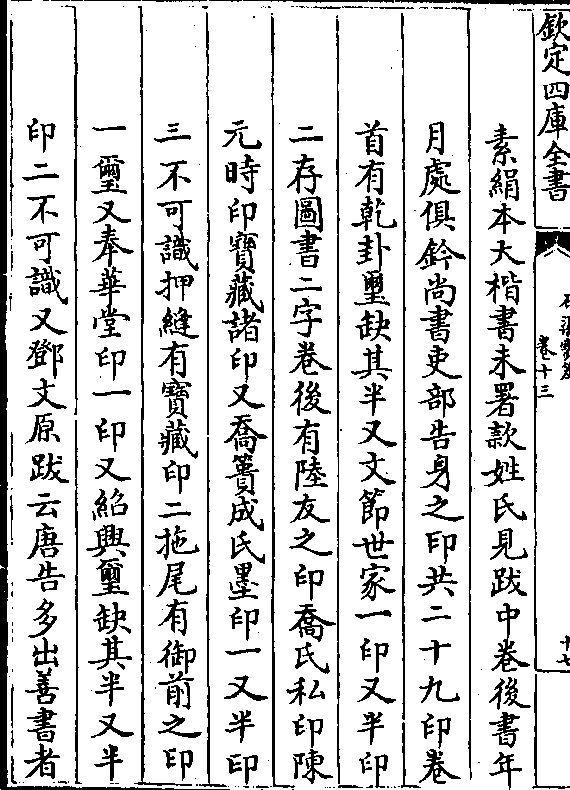 欽定四庫全書
卷十三
十七
素絹本大楷書未署款姓氏見跋中卷後書年
月處俱鈐尚書吏部告身之印共二十九印卷
首有乾卦璽缺其半又文節世家一印又半印
二存圖書二字卷後有陸友之印喬氏私印陳
元時印寶藏諸印又喬簣成氏墨印一又半印
三不可識押縫有寶藏印二拖尾有御前之印
一璽又奉華堂印一印又紹興璽缺其半又半
印二不可識又鄧文原跋云唐告多出善書者